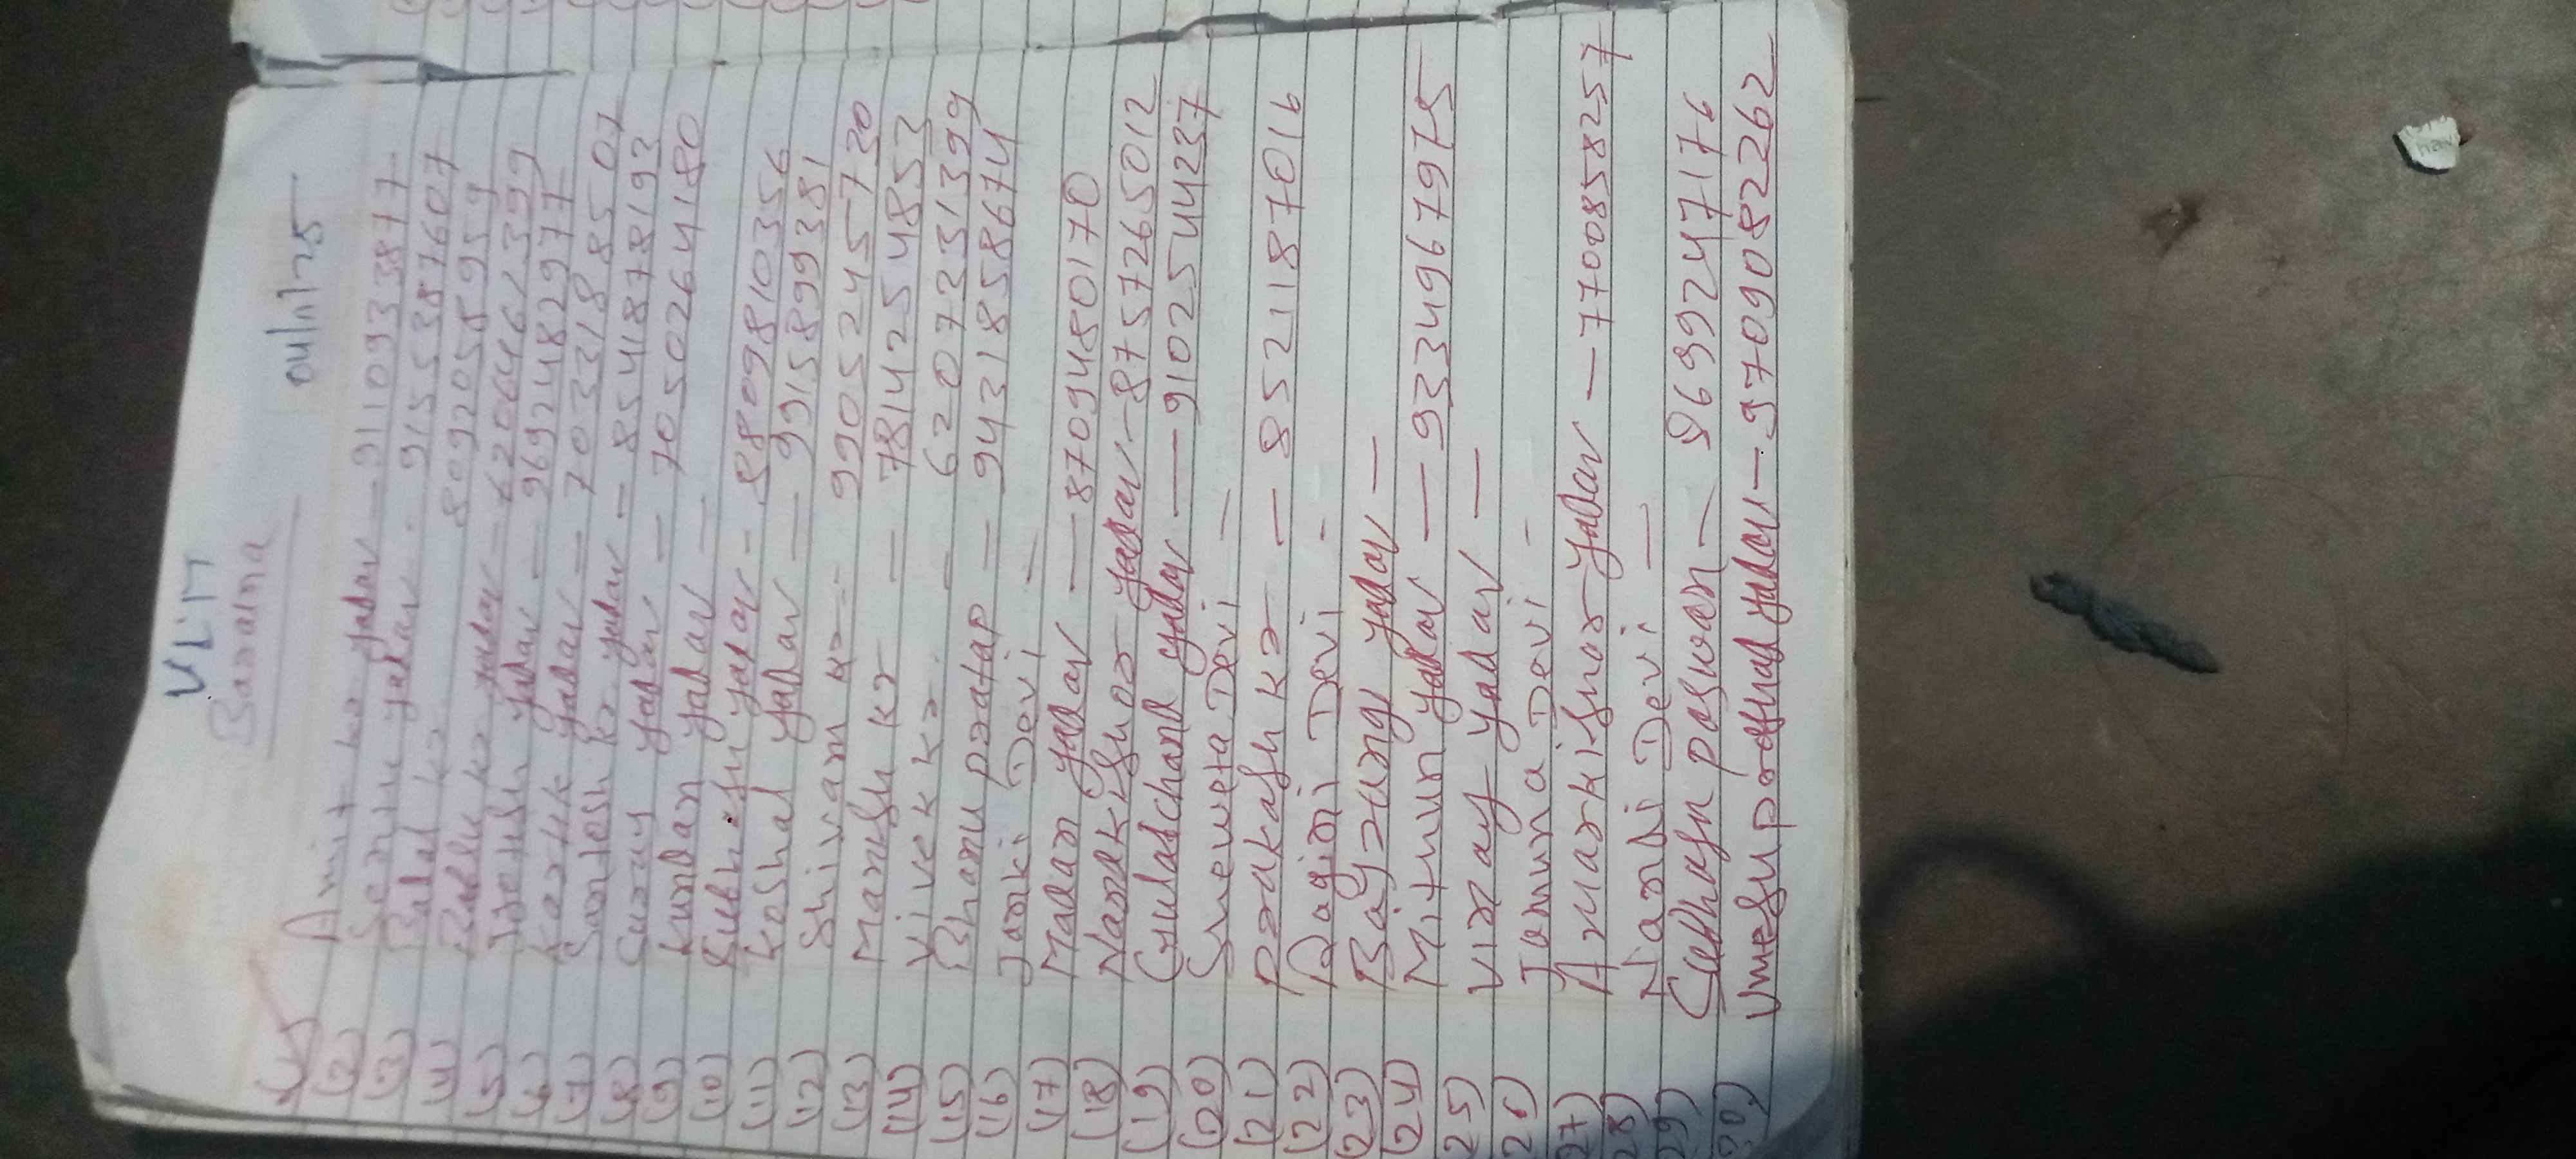 VLM
Baralna
04/11/25
(1) Amit kr yadav - 9110933877
(2) yadav - 9155387607
(3) kr 8092058959
(4) kr yadav - 6206461399
(5) yadav - 9692482977
(6) Kartik yadav - 7033188507
(7) Santosh kr yadav - 8541878193
(8) yadav - 7050264180
(9) Kundan yadav -
(10) yadav - 8809810356
(11) Koshal yadav - 9915899381
(12) Shivam kr - 9905245720
(13) Manish kr - 7814254853
(14) Vivek kr - 6207231399
(15) Bhanu pratap - 9431858674
(16) Janki Devi -
(17) Madan yadav - 8709480170
(18) Nandkishor yadav - 8757265012
(19) Gulabchand yadav - 9102544237
(20) Shweta Devi -
(21) Prakash kr - 8521187016
(22) Ragini Devi -
(23) Bajrangi yadav -
(24) Mithun yadav - 9334967975
25) Vinay yadav -
26) Jamuna Devi -
27) yadav - 7700858257
28) Devi -
29) Subhash paswan - 8699247176
30) Umesh prashad yadav - 9709082262